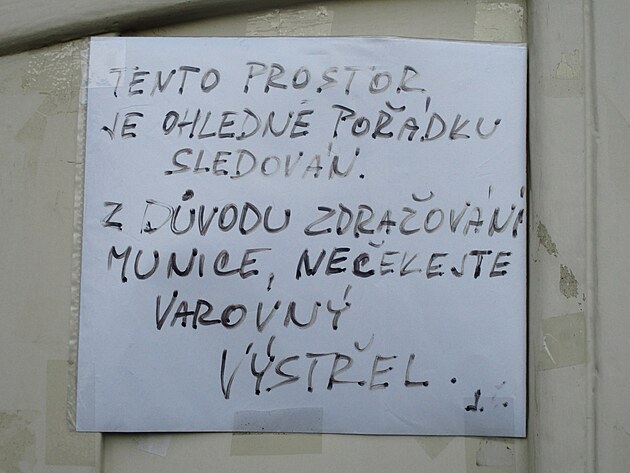 TENTO PROSTOR,
JE OHLEDNĚ POŘÁDKU
SLEDOVÁN.
Z DŮVODU ZDRAŽOVÁNÍ
MUNICE, NEČEKEJTE
VAROVNÝ
VÝSTŘEL.